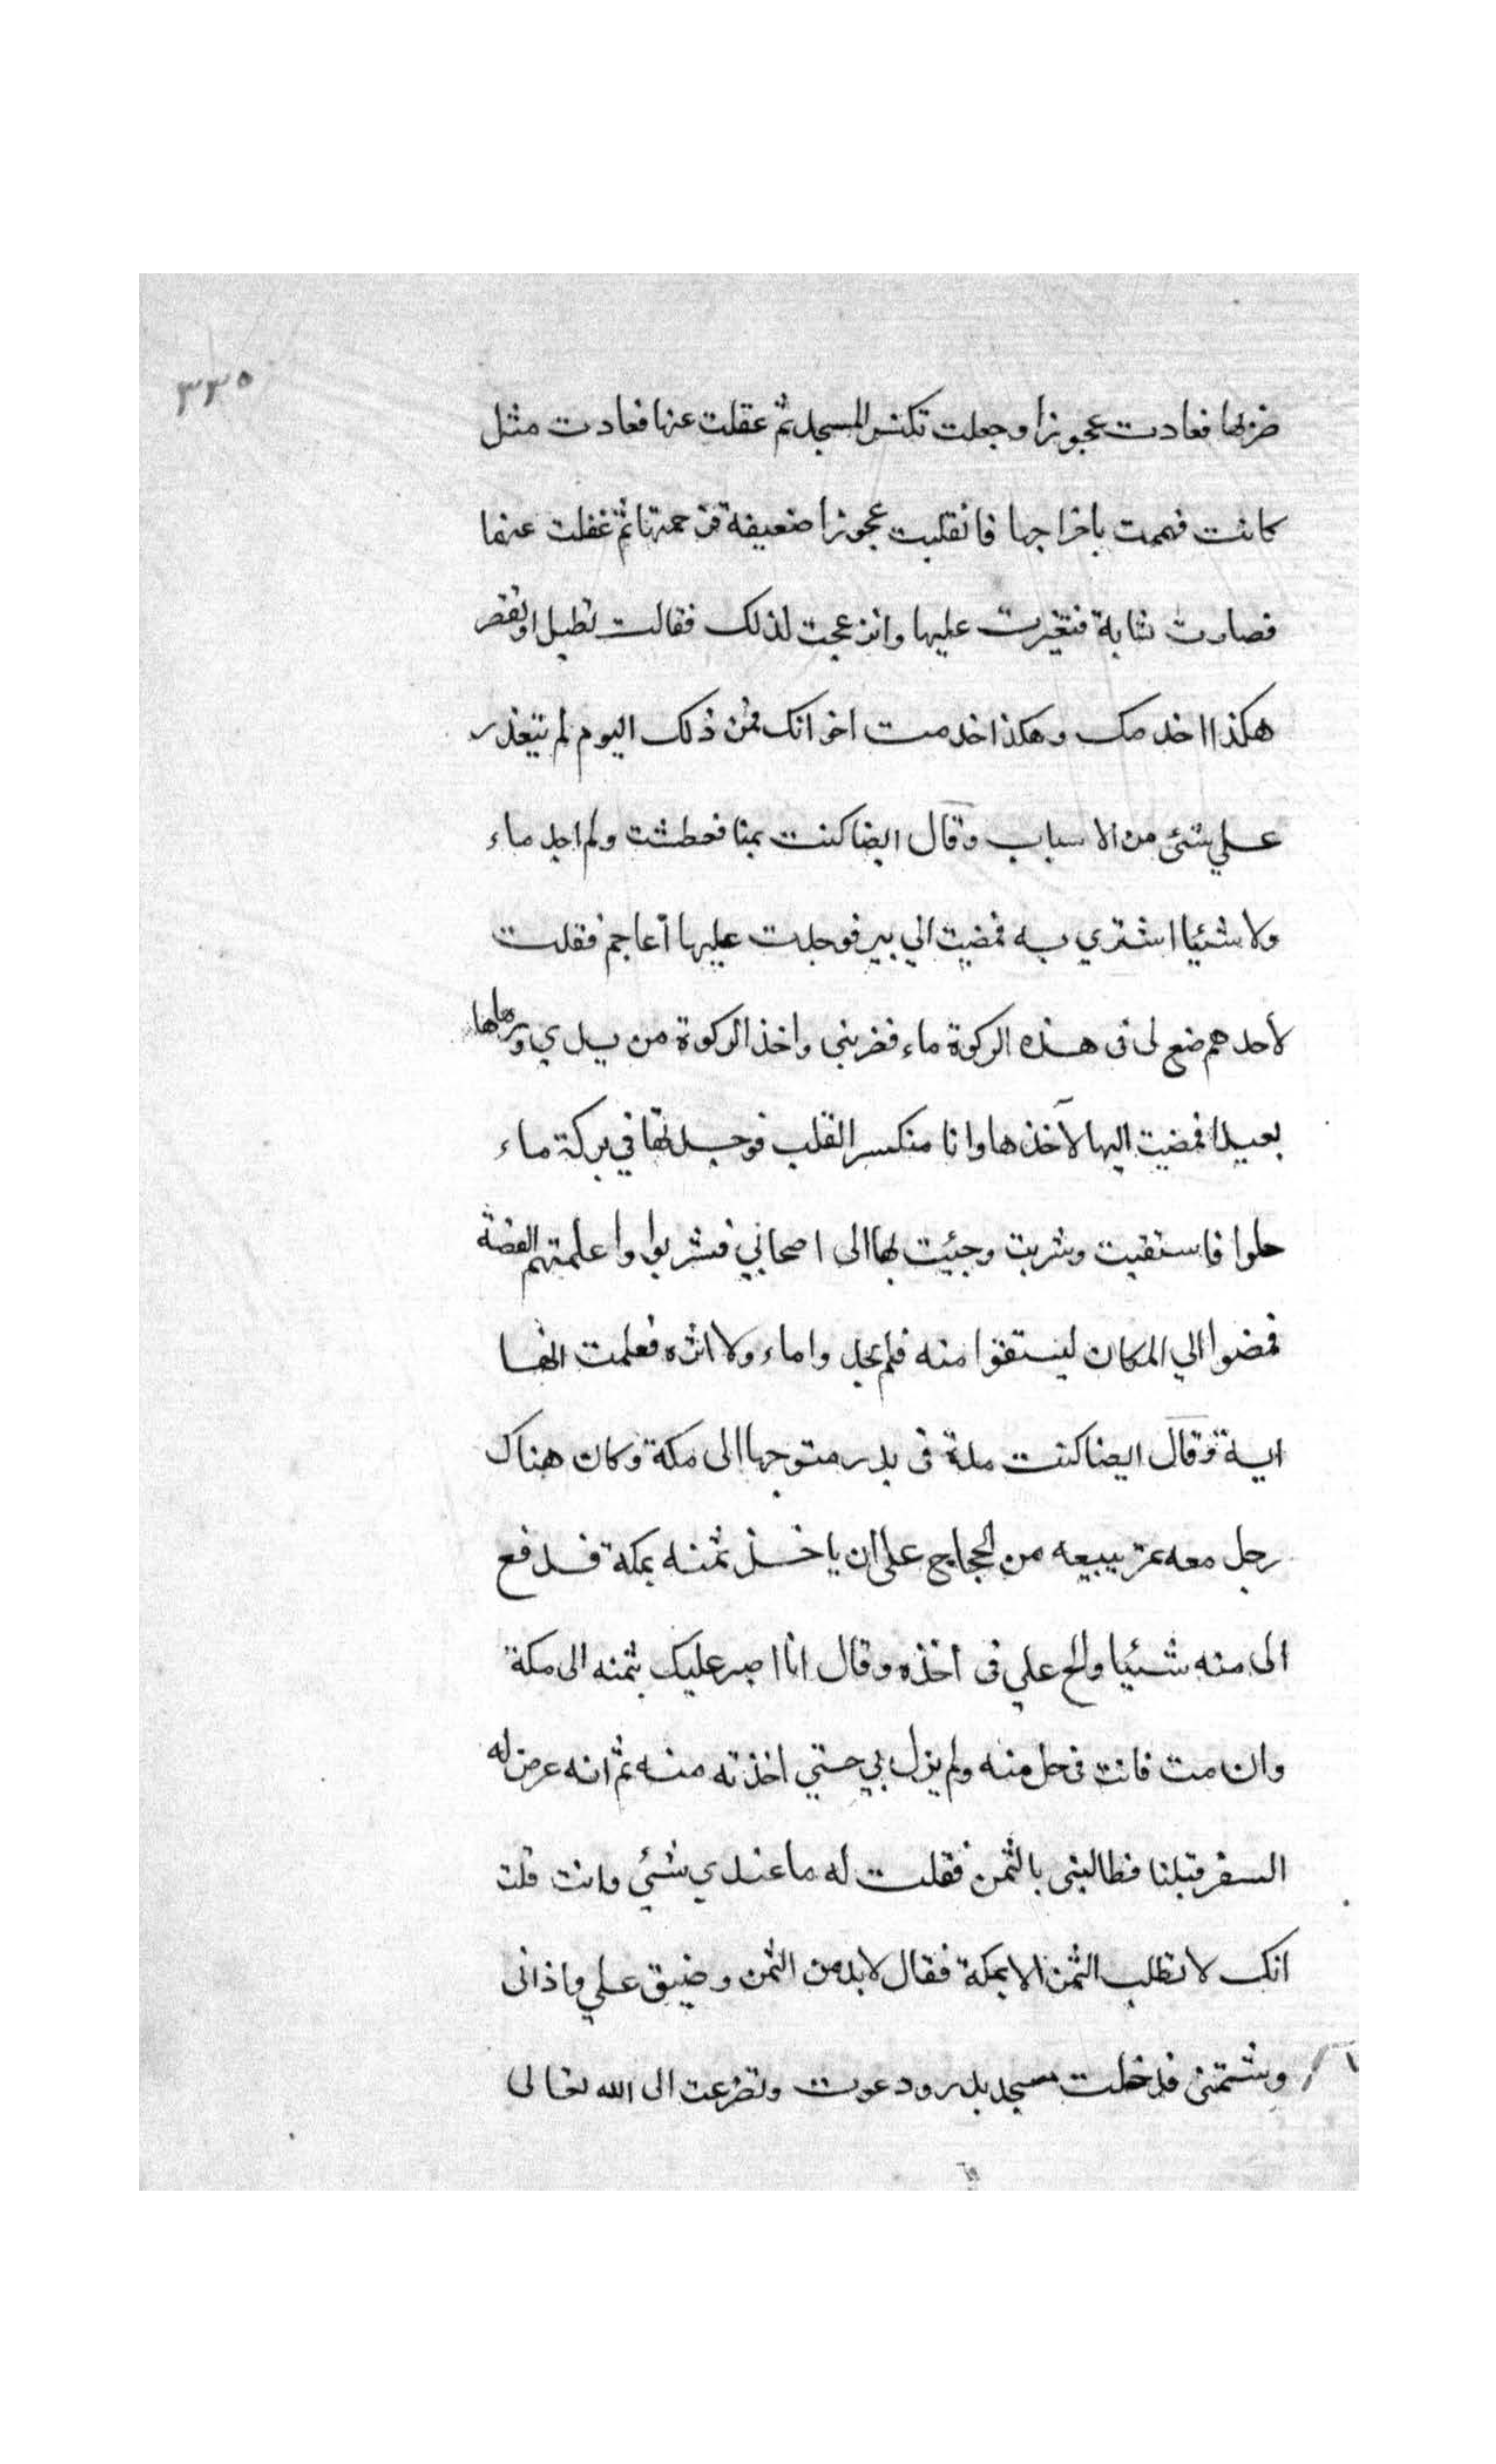 ٣٣٥
ضربها فعادت عجوزا وجعلت تكنس المسجد ثم عقلت عنها فعادت مثل
كانت فهممت باخراجها فانقلبت عجوزا ضعيفة فرحمتها ثم غفلت عنها
فصارت شابة فتغيرت عليها وانزعجت لذلك فقالت تطيل او تقصر
هكذا اخدمك وهكذا خدمت اخوانك فمن ذلك اليوم لم يتعذر
علي شئ من الاسباب وقال ايضا كنت بمنا فعطشت ولم اجد ماء
ولا شئيا اشتري به فمضيت الي بير فوجدت عليها أعاجم فقلت
لأحدهم ضع لى فى هذه الركوة ماء فضربني واخذ الركوة من يدي ورماها
بعيدا فمضيت اليها لآخذها وانا منكسر القلب فوجدتها في بركة ماء
حلوا فاستقيت وشربت وجئت بها الى اصحابي فشربوا واعلمتهم القصة
فمضوا الي المكان ليستقوا منه فلم يجدوا ماء ولا اثره فعلمت انها
اية وقال ايضا كنت مدة فى بدر متوجها الى مكة وكان هناك
رجل معه تمر يبيعه من الحجاج على ان ياخذ ثمنه بمكة فدفع
الى منه شئيا والح علي فى أخذه وقال انا اصبر عليك بثمنه الى مكة
وان مت فانت فى حل منه ولم يزل بي حتي اخذته منه ثم انه عرض له
السفر قبلنا فطالبنى بالثمن فقلت له ما عندي شئي وانت قلت
انك لا تطلب الثمن الا بمكة فقال لابد من الثمن وضيق علي واذانى
وشتمنى فدخلت مسجد بدر ودعوت وتضرعت الى الله تعالى